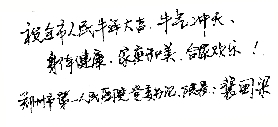 祝全市人民牛年大吉、牛气冲天、
身体健康、家庭和美、合家欢乐！
郑州市第一人民医院党委书记、院长：